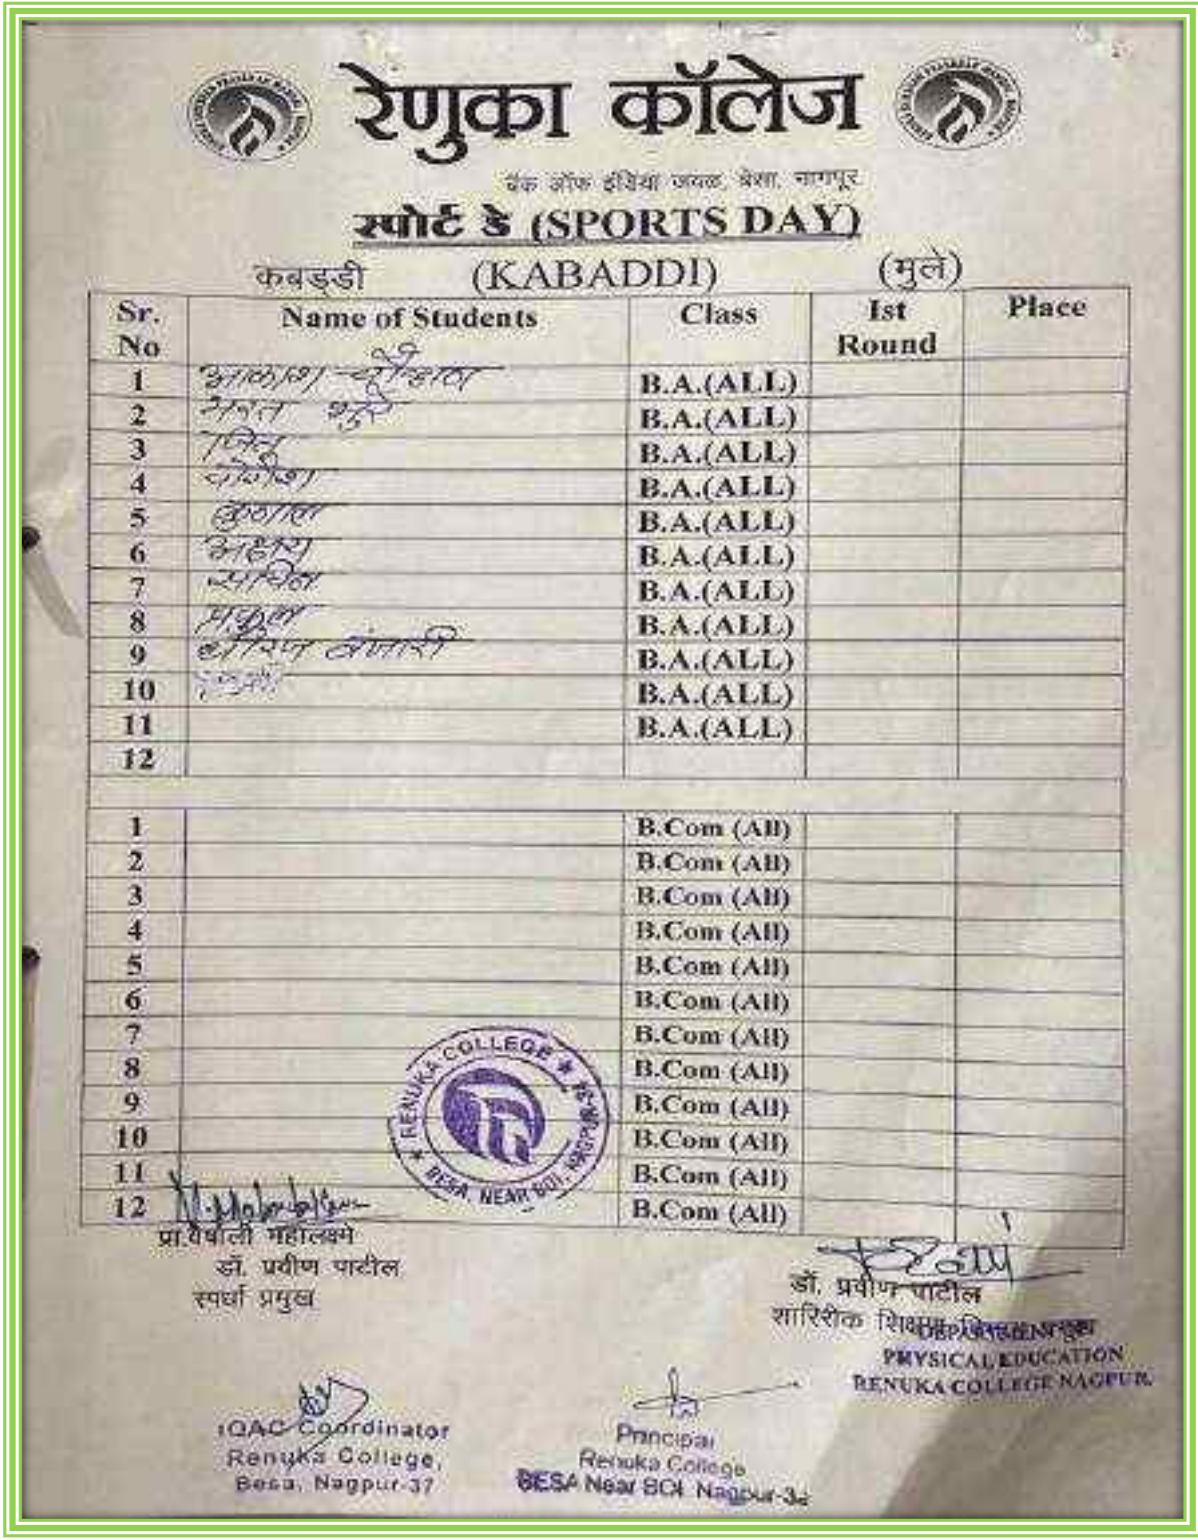 रेणुका कॉलेज
बँक ऑफ इंडिया जवळ, बेसा, नागपूर.
स्पोर्ट डे (SPORTS DAY)
कबड्डी (KABADDI) (मुले)
Sr. No Name of Students Class Ist Round Place
1 आकाश चौव्हान B.A.(ALL)
2 भरत B.A.(ALL)
3 जितू B.A.(ALL)
4 योगेश B.A.(ALL)
5 कुणाल B.A.(ALL)
6 B.A.(ALL)
7 सचिन B.A.(ALL)
8 B.A.(ALL)
9 धीरज बंजारी B.A.(ALL)
10 B.A.(ALL)
11 B.A.(ALL)
12
1 B.Com (All)
2 B.Com (All)
3 B.Com (All)
4 B.Com (All)
5 B.Com (All)
6 B.Com (All)
7 B.Com (All)
8 B.Com (All)
9 B.Com (All)
10 B.Com (All)
11 B.Com (All)
12 B.Com (All)
RENUKA COLLEGE
BESA, NEAR BOI, NAGPUR-37
प्रा.वैषाली महालक्ष्मे
डॉ. प्रवीण पाटील
स्पर्धा प्रमुख
डॉ. प्रवीण पाटील
शारिरीक शिक्षण
DEPARTMENT OF
PHYSICAL EDUCATION
RENUKA COLLEGE NAGPUR.
IQAC Coordinator
Renuka College,
Besa, Nagpur-37
Principal
Renuka College
BESA Near BOI Nagpur-37